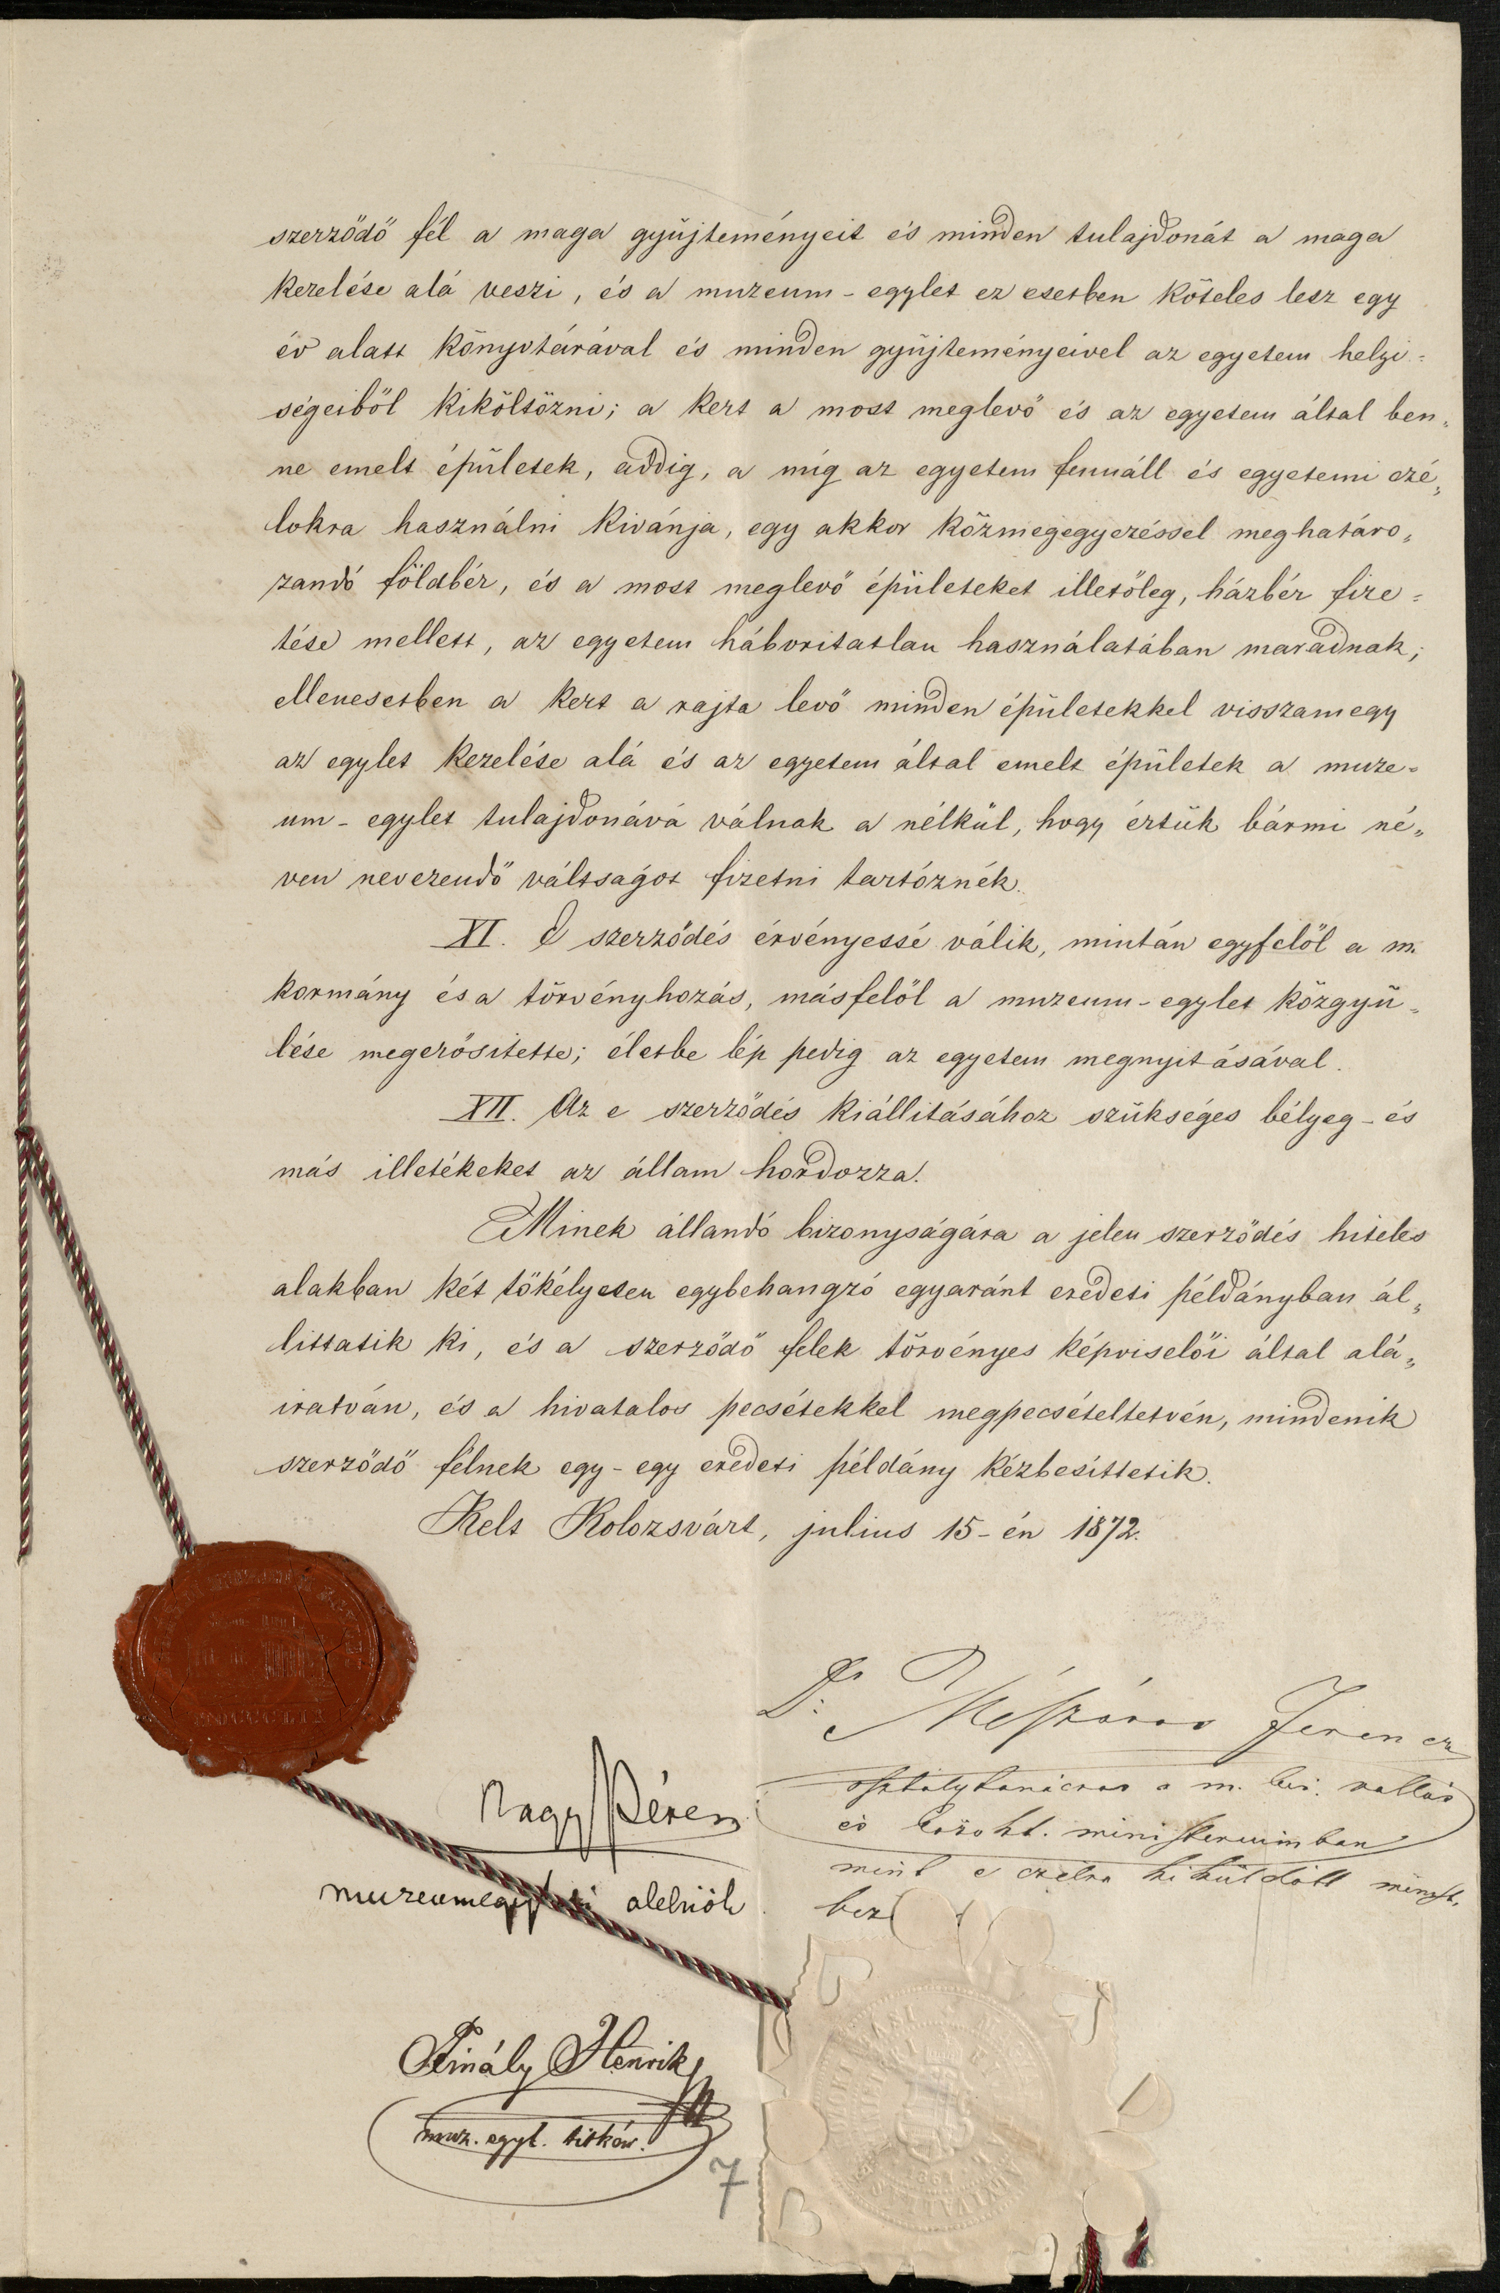 szerződő fél a maga gyűjteményeit és minden tulajdonát a maga
kezelése alá veszi, és a muzeum-egylet ez esetben köteles lesz egy
év alatt könyvtárával és minden gyűjteményeivel az egyetem helyi-
ségeiből kiköltözni; a kert a most meglevő és az egyetem által ben-
ne emelt épületek, addig, a mig az egyetem fennáll és egyetemi czé-
lokra használni kivánja, egy akkor közmegegyezéssel meghatáro-
zandó földbér, és a most meglevő épületeket illetőleg, házbér fize-
tése mellett, az egyetem háboritatlan használatában maradnak;
ellenesetben a kert a rajta levő minden épületekkel visszamegy
az egylet kezelése alá és az egyetem által emelt épületek a muze-
um-egylet tulajdonává válnak a nélkül, hogy értük bármi né-
ven nevezendő váltságot fizetni tartóznék.
XI. E szerződés érvényessé válik, miután egyfelől a m.
kormány és a törvényhozás, másfelől a muzeum-egylet közgyü-
lése megerősitette; életbe lép pedig az egyetem megnyitásával.
XII. Az e szerződés kiállitásához szükséges bélyeg- és
más illetékeket az állam hordozza.
Minek állandó bizonyságára a jelen szerződés hiteles
alakban két tökélyesen egybehangzó egyaránt eredeti példányban ál-
littatik ki, és a szerződő felek törvényes képviselői által alá-
iratván, és a hivatalos pecsétekkel megpecsételtetvén, mindenik
szerződő félnek egy-egy eredeti példány kézbesittetik.
Kelt Kolozsvárt, julius 15-én 1872.
Dr Mészáros Ferencz
osztálytanácsos a m. kir. vallás
és közokt. ministeriumban
mint e czélra kiküldött minist.
Nagy Péter
muzeumegyleti alelnök
Finály Henrik
muz. egyl. titkár.
7